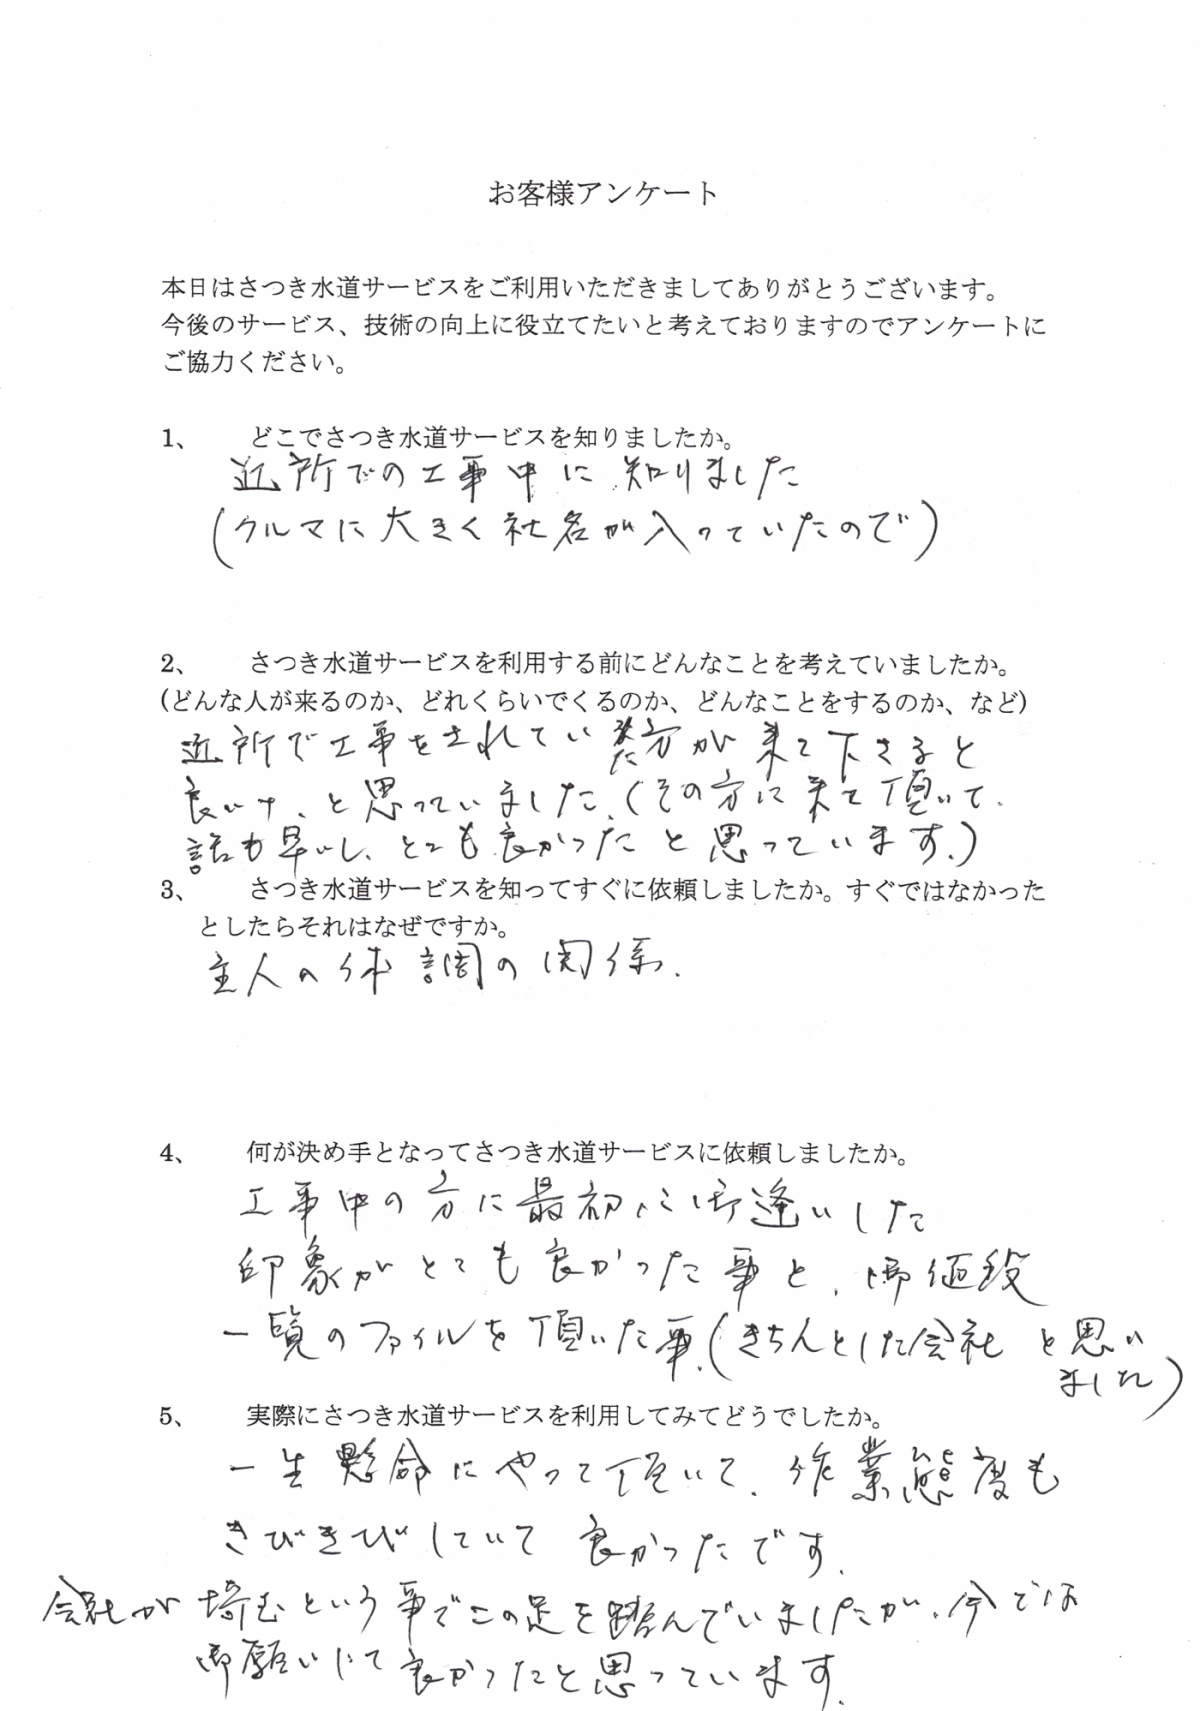 お客様アンケート
本日はさつき水道サービスをご利用いただきましてありがとうございます。
今後のサービス、技術の向上に役立てたいと考えておりますのでアンケートに
ご協力ください。
1、 どこでさつき水道サービスを知りましたか。
近所での工事中に知りました
(クルマに大きく社名が入っていたので)
2、 さつき水道サービスを利用する前にどんなことを考えていましたか。
(どんな人が来るのか、どれくらいでくるのか、どんなことをするのか、など)
近所で工事をされてい た方が来て下さると
良いナ、と思っていました。(その方に来て頂いて、
話も早いし、とても良かったと思っています。)
3、 さつき水道サービスを知ってすぐに依頼しましたか。すぐではなかった
としたらそれはなぜですか。
主人の体調の関係.
4、 何が決め手となってさつき水道サービスに依頼しましたか。
工事中の方に最初に御逢いした
印象がとても良かった事と、御値段
一覧のファイルを頂いた事。(きちんとした会社と思い
ました)
5、 実際にさつき水道サービスを利用してみてどうでしたか。
一生懸命にやって頂いて、作業態度も
きびきびしていて良かったです。
会社が埼玉という事で二の足を踏んでいましたが、今では
御願いして良かったと思っています。